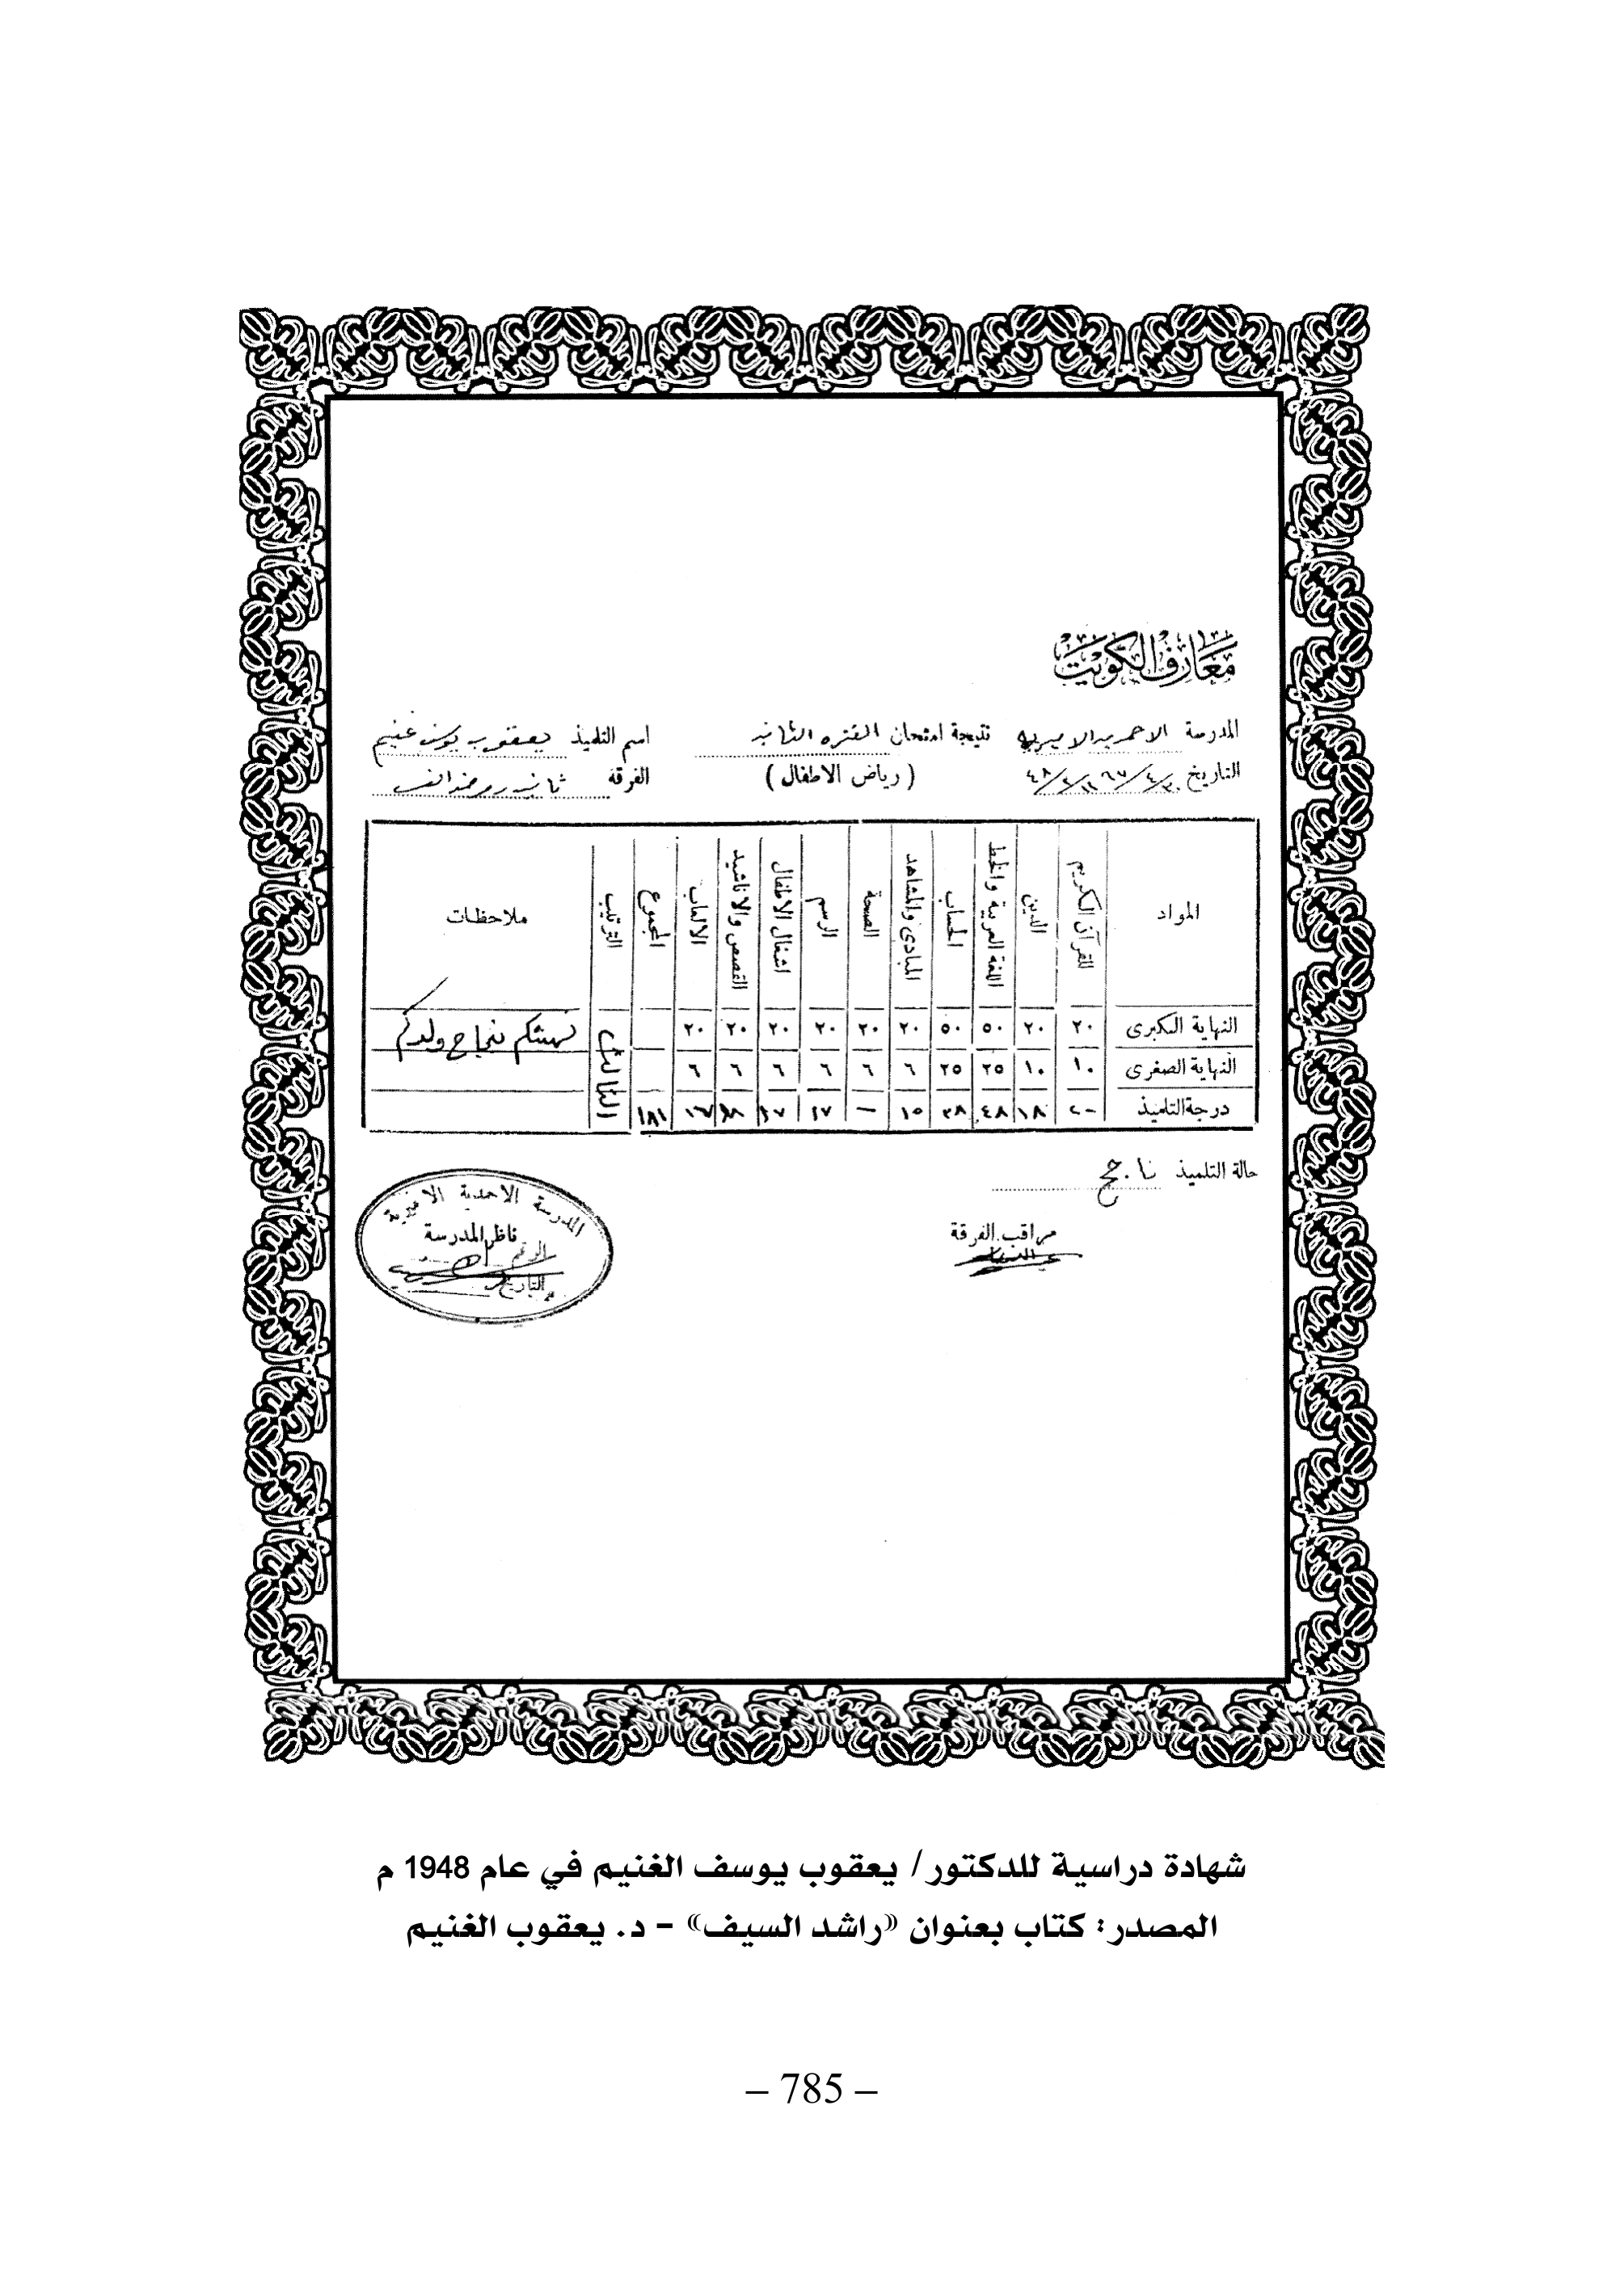 معارف الكويت
المدرسة الاحمديه الاميريه نتيجة امتحان الفتره الثانيه اسم التلميذ يعقوب يوسف غنيم
التاريخ ٤٨/٤/١١ ٦٧/ (رياض الاطفال) الفرقة ثانيه روضه الف
المواد القرآن الكريم الدين اللغة العربية والخط الحساب المبادئ والمشاهد الصحة الرسم اشغال الاطفال القصص والاناشيد الالعاب المجموع الترتيب ملاحظات
النهاية الكبرى ٢٠ ٢٠ ٥٠ ٥٠ ٢٠ ٢٠ ٢٠ ٢٠ ٢٠ ٢٠ الثالث نهنئكم بنجاح ولدكم
النهاية الصغرى ١٠ ١٠ ٢٥ ٢٥ ٦ ٦ ٦ ٦ ٦ ٦
درجة التلميذ ٢٠ ١٨ ٤٨ ٣٨ ١٥ — ١٧ ١٧ ١٨١
حالة التلميذ ناجح
مراقب الفرقة
المدرسة الاحمدية الاميرية
ناظر المدرسة
الرقم
التاريخ
شهادة دراسية للدكتور/ يعقوب يوسف الغنيم في عام 1948 م
المصدر: كتاب بعنوان «راشد السيف» – د. يعقوب الغنيم
– 785 –